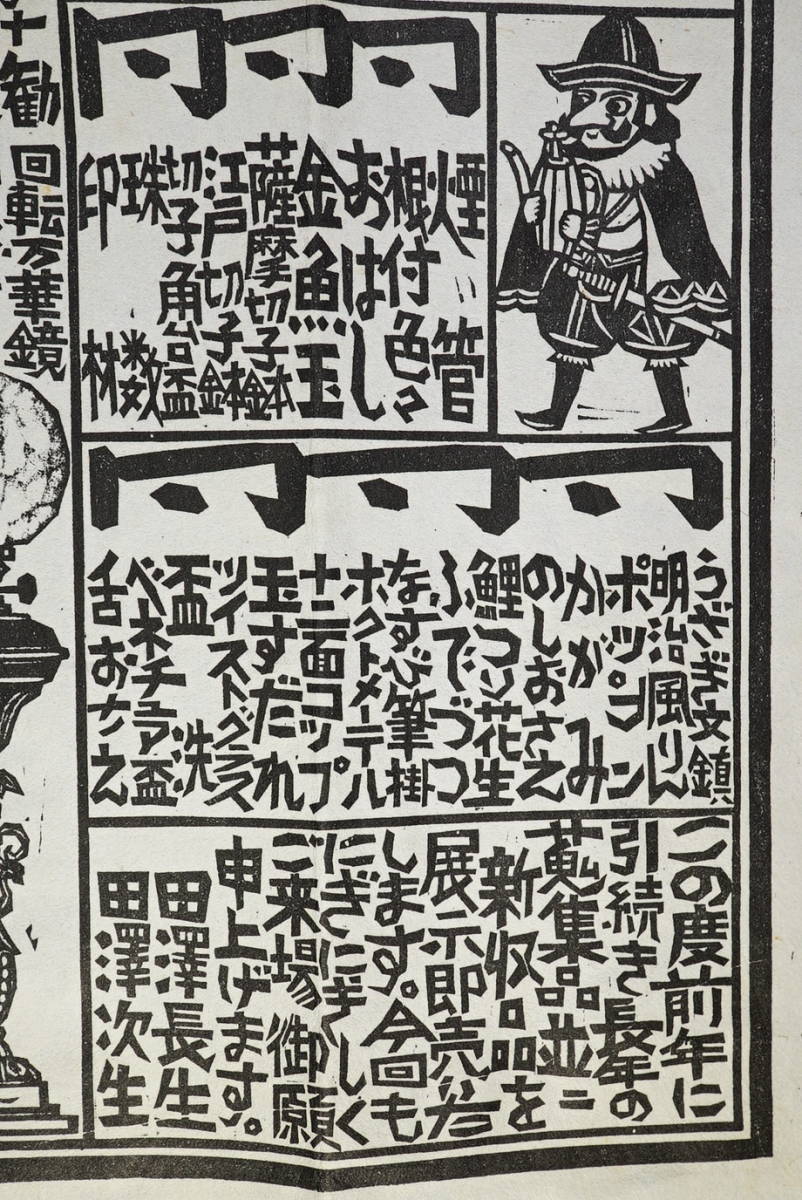 煙管
根付色々
おはし
金魚玉
薩摩切子鉢
江戸切子鉢
切子角台盃
珠数
印材
うさぎ文鎮
明治風りん
ポッコン
かがみ
のしおさえ
鯉つり花生
ふでづつ
なすび筆掛
ホクトメーテル
十二面コップ
玉すだれ
ツイストグラス
盃洗
ベネチュア盃
舌おさえ
この度前年に
引続き長年の
蒐集品並ニ
新収品を
展示即売致
します。今回も
にぎにぎしく
ご来場御願
申上げます。
田澤長生
田澤次生
回転万華鏡
勧